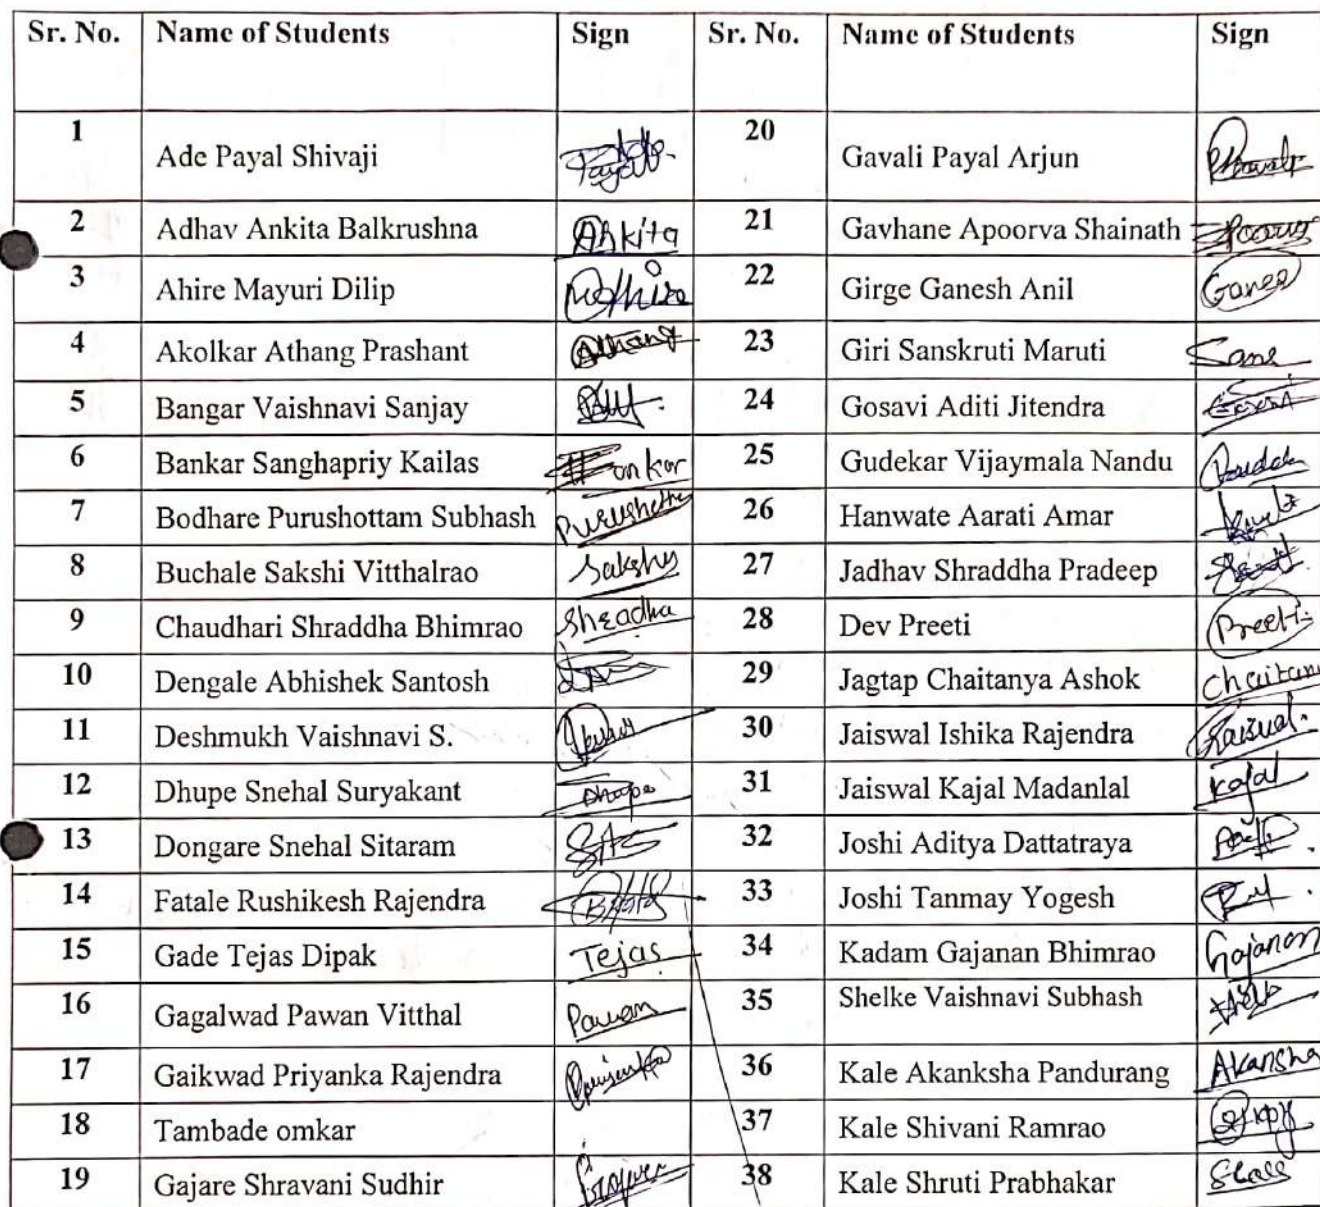 Sr. No. Name of Students Sign Sr. No. Name of Students Sign
1 Ade Payal Shivaji Payal 20 Gavali Payal Arjun
2 Adhav Ankita Balkrushna Ankita 21 Gavhane Apoorva Shainath
3 Ahire Mayuri Dilip 22 Girge Ganesh Anil
4 Akolkar Athang Prashant Athang 23 Giri Sanskruti Maruti
5 Bangar Vaishnavi Sanjay 24 Gosavi Aditi Jitendra
6 Bankar Sanghapriy Kailas 25 Gudekar Vijaymala Nandu
7 Bodhare Purushottam Subhash 26 Hanwate Aarati Amar
8 Buchale Sakshi Vitthalrao 27 Jadhav Shraddha Pradeep
9 Chaudhari Shraddha Bhimrao 28 Dev Preeti Preeti
10 Dengale Abhishek Santosh 29 Jagtap Chaitanya Ashok
11 Deshmukh Vaishnavi S. 30 Jaiswal Ishika Rajendra
12 Dhupe Snehal Suryakant 31 Jaiswal Kajal Madanlal Kajal
13 Dongare Snehal Sitaram 32 Joshi Aditya Dattatraya
14 Fatale Rushikesh Rajendra 33 Joshi Tanmay Yogesh
15 Gade Tejas Dipak Tejas 34 Kadam Gajanan Bhimrao Gajanan
16 Gagalwad Pawan Vitthal Pawan 35 Shelke Vaishnavi Subhash
17 Gaikwad Priyanka Rajendra 36 Kale Akanksha Pandurang Akansha
18 Tambade omkar 37 Kale Shivani Ramrao
19 Gajare Shravani Sudhir 38 Kale Shruti Prabhakar